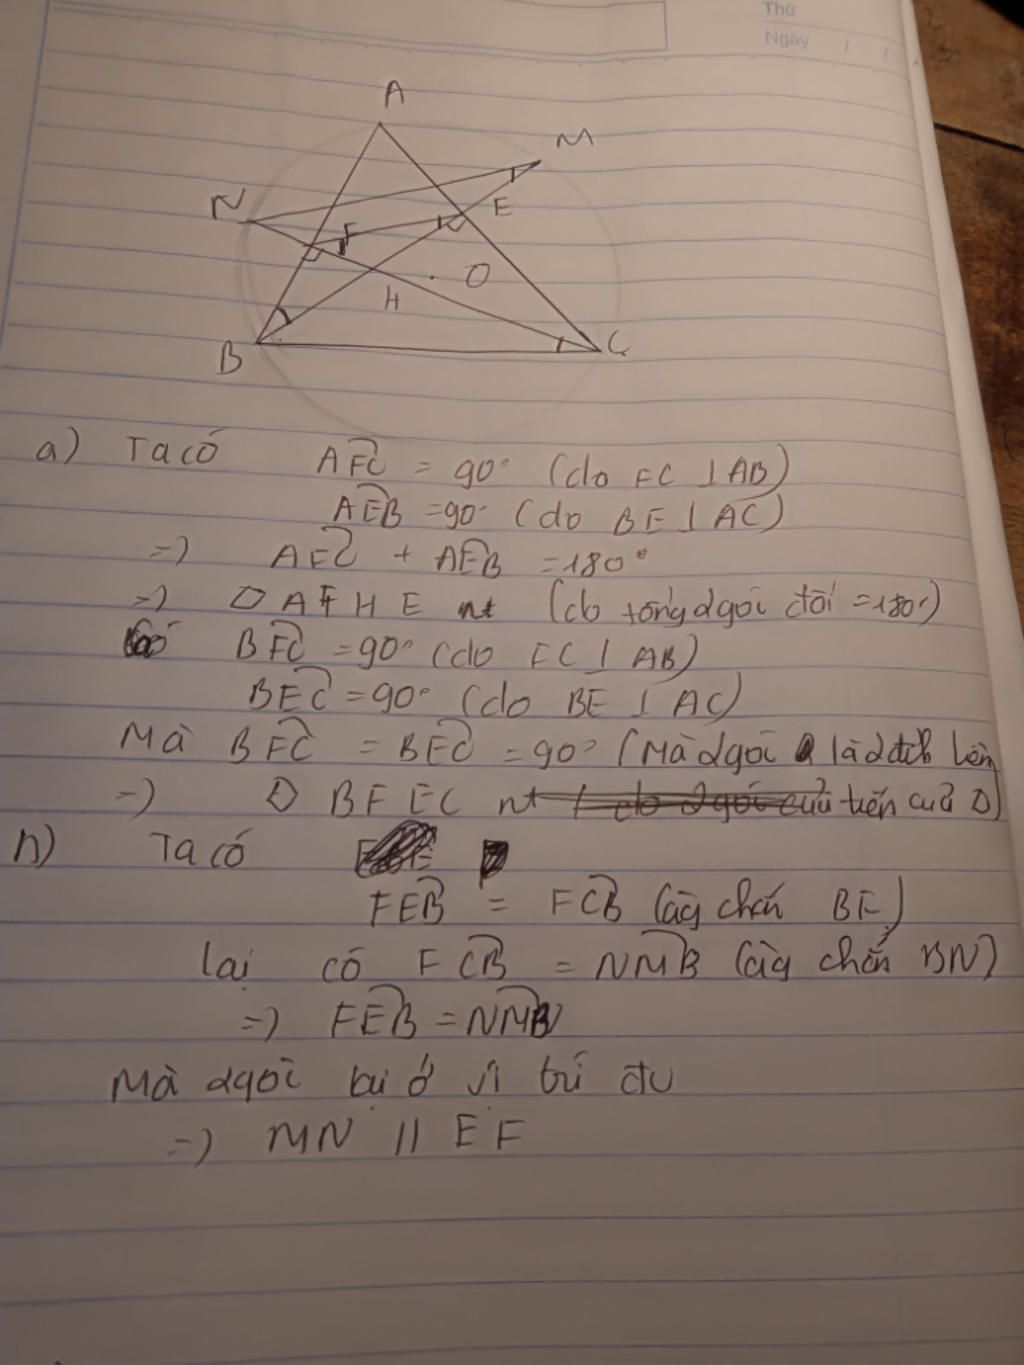 Thứ
Ngày / /
A
M
N
E
F
O
H
B
C
a) Ta có AFC = 90° (do FC ⊥ AB)
AEB = 90° (do BE ⊥ AC)
=> AFC + AEB = 180°
=> ◊ AFHE nt (do tổng 2 góc đối = 180°)
Có BFC = 90° (do FC ⊥ AB)
BEC = 90° (do BE ⊥ AC)
Mà BFC = BEC = 90° (Mà 2 góc là 2 đỉnh liên
=> ◊ BFEC nt tiến cuả ◊)
Ta có
FEB = FCB (cùg chắn BF)
lại có FCB = NMB (cùg chắn BN)
=> FEB = NMB
Mà 2 góc ở vị trí đv
=> MN // EF